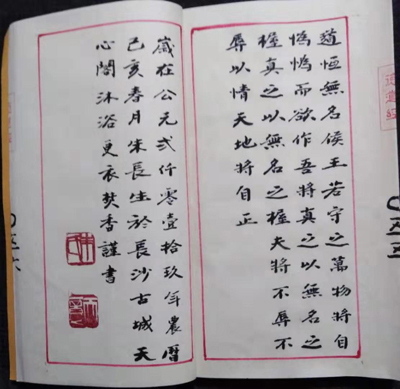 道恒無名侯王若守之萬物將自
而欲作吾將真之以無名之
楃真之以無名之楃夫將不辱不
辱以情天地將自正
歲在公元弍仟零壹拾玖年農曆
己亥春月朱長生於長沙古城天
心閣沐浴更衣焚香謹書